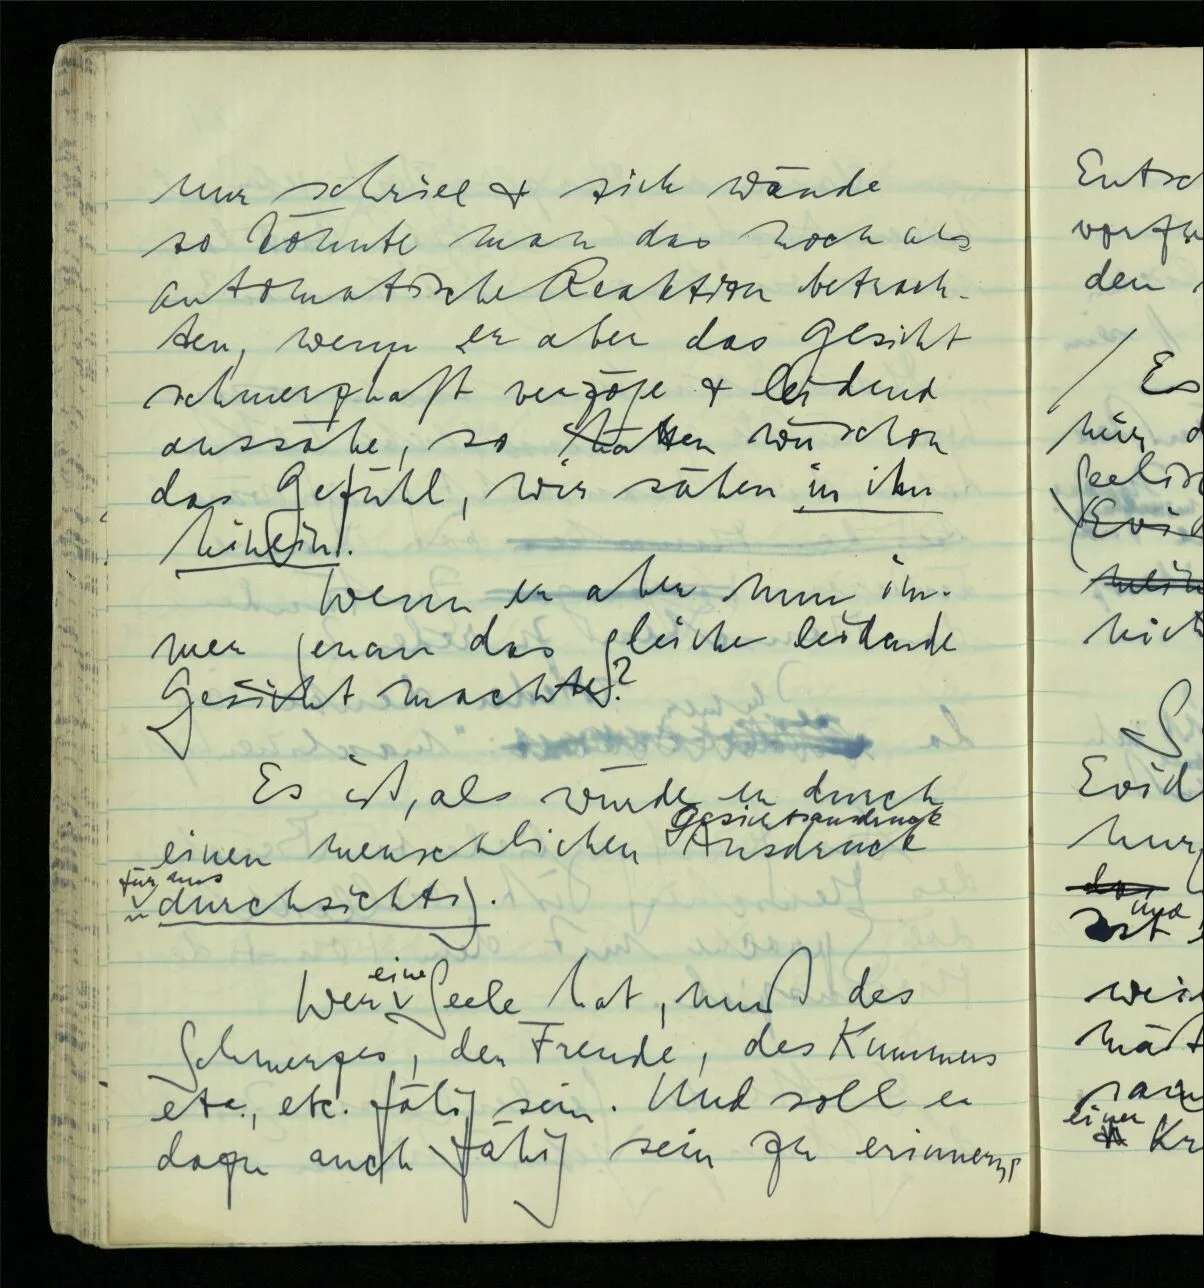 nur schriee & sich wände
so könnte man das noch als
automatische Reaktion betrach-
ten, wenn er aber das Gesicht
schmerzhaft verzöge & leidend
aussähe, so hätten wir schon
das Gefühl, wir sähen in ihn
hinein.
Wenn er aber nun im-
mer genau das gleiche leidende
Gesicht machte?
Es ist, als würde er durch
Gesichtsausdruck
einen menschlichen Ausdruck
für uns
durchsichtig.
eine
Wer Seele hat, muß des
Schmerzes, der Freude, des Kummers
etc., etc. fähig sein. Und soll er
dazu auch fähig sein zu erinnern,
Entsch
den
/ Es
hier
Evid
nur
und
einer
Kr